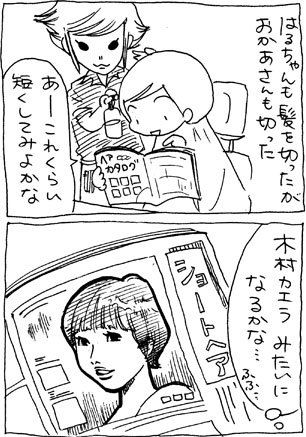 はるちゃんも髪を切ったが
おかあさんも切った
ヘア
カタログ
あーこれくらい
短くしてみよかな
木村カエラ みたいに
なるかな…
ふふ…
ショートヘア